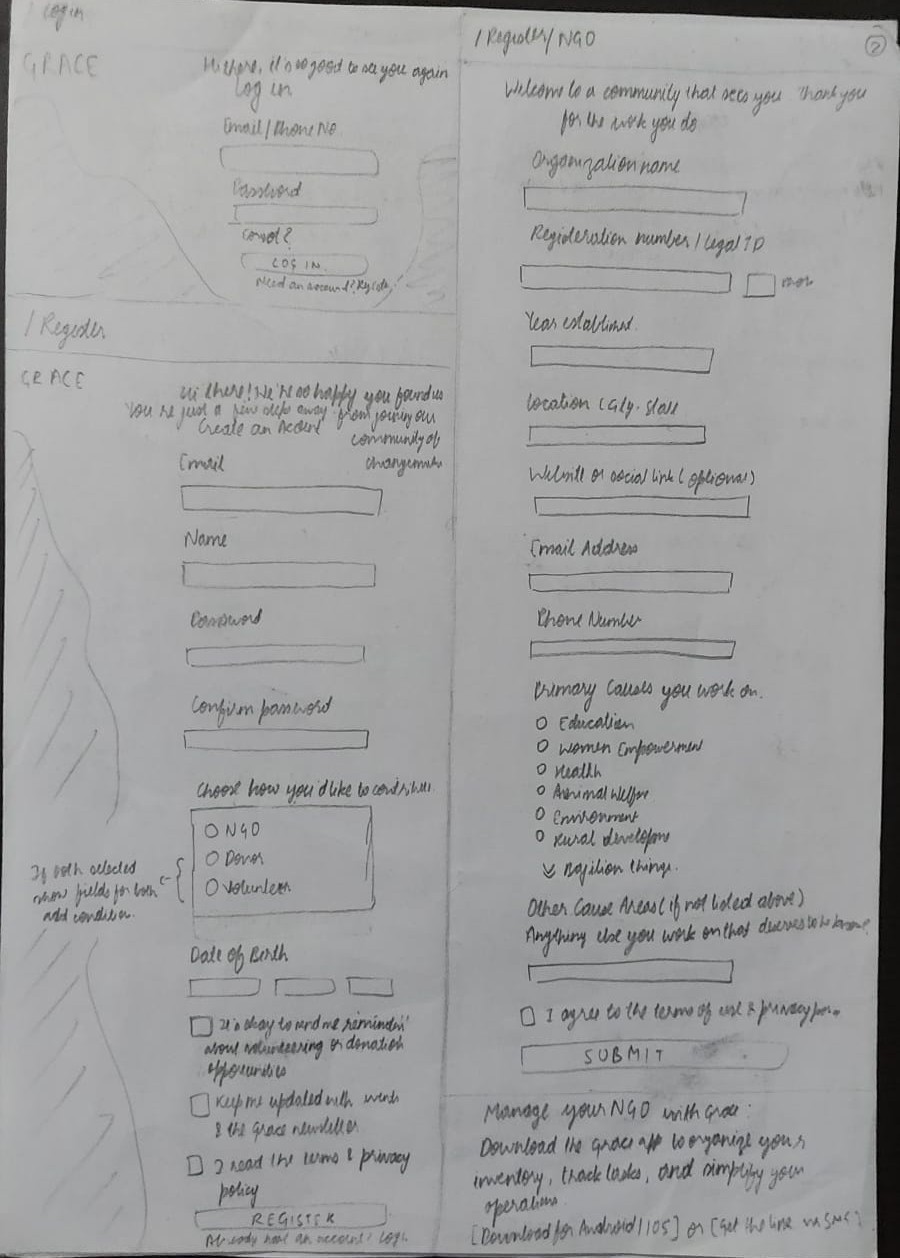 / Login
GRACE
Hi there, it's so good to see you again
Log in
Email / Phone No
Password
LOG IN
Need an account? Register
/ Register
GRACE
Hi there! We're so happy you found us
You're just a few steps away from joining our
community of
changemakers
Create an Account
Email
Name
Password
Confirm password
Choose how you'd like to contribute.
NGO
Donor
Volunteer
If both selected
show fields for both
add condition.
Date of Birth
It's okay to send me reminders
about volunteering or donation
opporunities
Keep me updated with events
& the Grace newsletter
I read the terms & privacy
policy
REGISTER
Already have an account? Login
/ Register / NGO
2
Welcome to a community that sees you Thank you
for the work you do
Organization name
Registeration number / Legal ID
Year established.
Location (City. State
Website or social link (optional)
Email Address
Phone Number
Primary Causes you work on.
Education
Women Empowerment
Health
Animal Welfare
Environment
Rural development
things.
Other Cause Areas (if not listed above)
Anything else you work on that deserves to be known?
I agree to the terms of use & privacy
SUBMIT
Manage your NGO with Grace:
Download the Grace app to organize your
inventory, track tasks, and simplify your
operations
[Download for Android / IOS] or [Get the link via SMS]